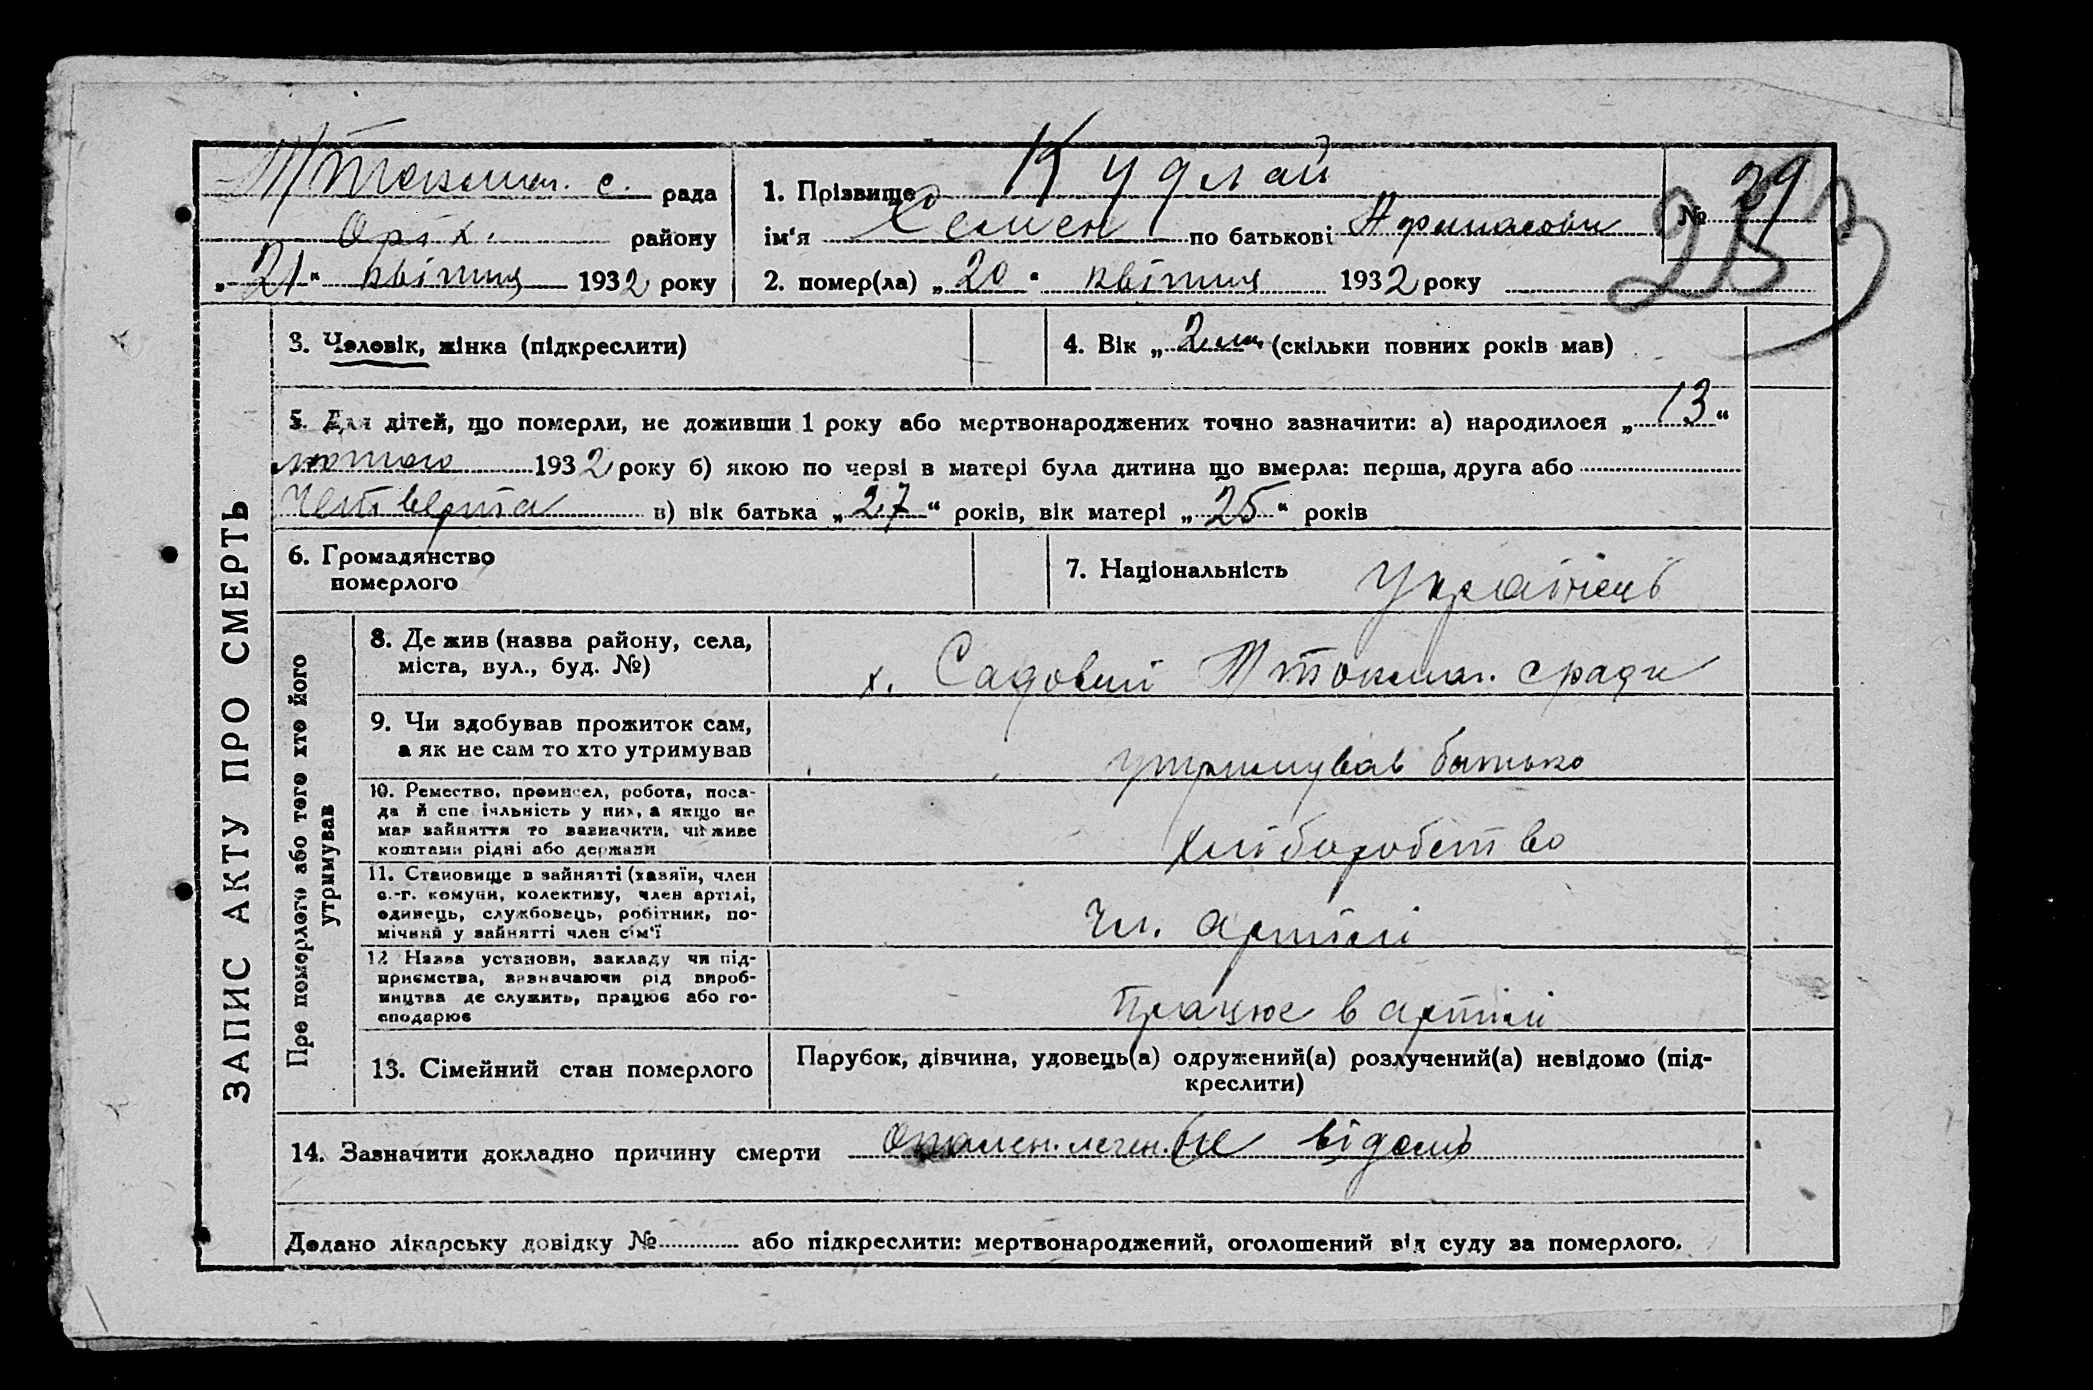 рада
Оріх. району
„21“ квітня 1932 року
1. Прізвище Кудлай
ім‘я Семен по батькові
2. помер(ла) „20“ квітня 1932 року
№ 39
253
ЗАПИС АКТУ ПРО СМЕРТЬ
3. Чоловік, жінка (підкреслити)
4. Вік „2 м.“ (скільки повних років мав)
5. Для дітей, що померли, не доживши 1 року або мертвонароджених точно зазначити: а) народилося „13“
лютого 1932 року б) якою по черзі в матері була дитина що вмерла: перша, друга або
Четверта в) вік батька „27“ років, вік матері „25“ років
6. Громадянство
померлого
7. Національність Українець
Про померлого або того хто його
утримував
8. Де жив (назва району, села,
міста, вул., буд. №)
х. Садовий сради
9. Чи здобував прожиток сам,
а як не сам то хто утримував
утримував батько
10. Ремество, промисел, робота, поса-
да й спеціяльність у них, а якщо не
мав зайняття то зазначити, чи живе
коштами рідні або держави
хліборобство
11. Становище в зайнятті (хазяїн, член
с.-г. комуни, колективу, член артілі,
одинець, службовець, робітник, по-
мічний у зайнятті член сім‘ї
Чл. артілі
12 Назва установи, закладу чи під-
приємства, зазначаючи рід вироб-
ництва де служить, працює або го-
сподарює
Працює в артілі
13. Сімейний стан померлого
Парубок, дівчина, удовець(а) одружений(а) розлучений(а) невідомо (під-
креслити)
14. Зазначити докладно причину смерти Опален. леген. Не відомо
Додано лікарську довідку № або підкреслити: мертвонароджений, оголошений від суду за померлого.